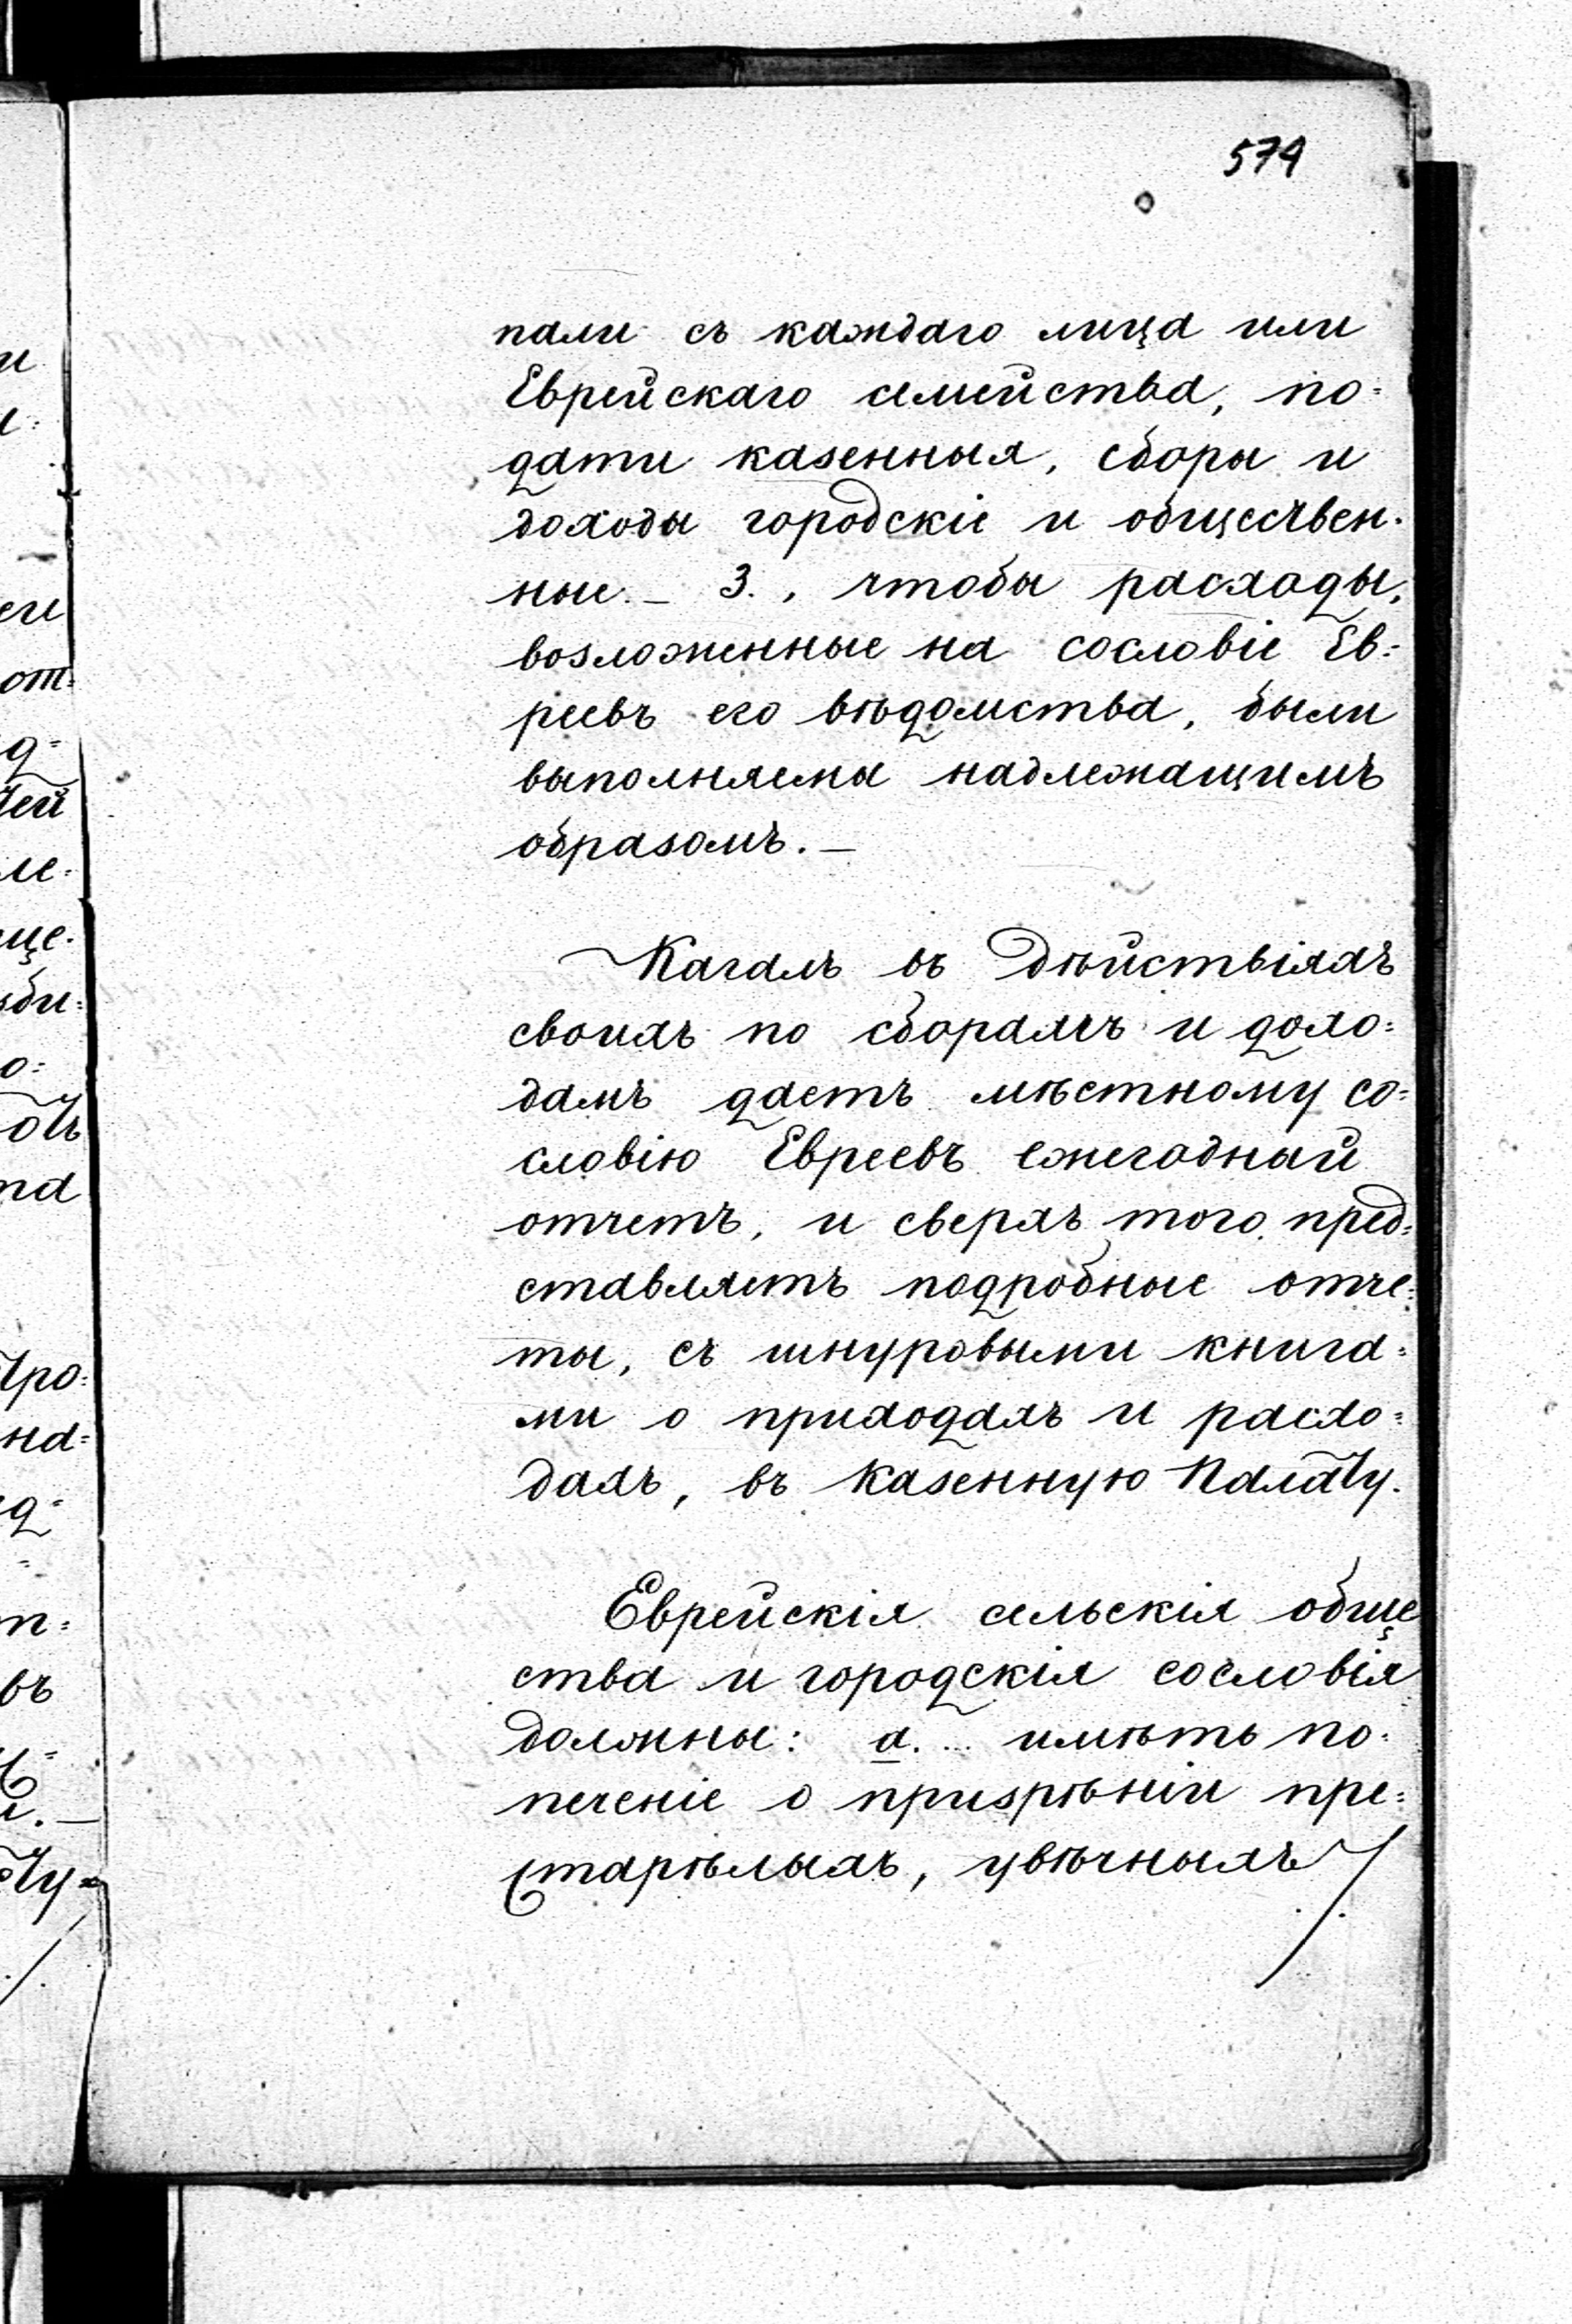 574
пали съ каждаго лица или
Еврейскаго семейства, по=
дати казенныя, сборы и
доходы городскіе и обществен=
ные. — 3., чтобы расходы,
возложенные на сословіе Ев=
реевъ его вѣдомства, были
выполняемы надлежащимъ
образомъ. —
Кагалъ въ дѣйствіяхъ
своихъ по сборамъ и дохо=
дамъ даетъ мѣстному со=
словію Евреевъ ежегодный
отчетъ, и сверхъ того, пред=
ставляетъ подробные отче=
ты, съ шнуровыми книга=
ми о приходахъ и расхо=
дахъ, въ Казенную Палату.
Еврейскія сельскія обще
ства и городскія сословія
должны: а. имѣть по=
печеніе о призрѣніи пре=
старѣлыхъ, увѣчныхъ